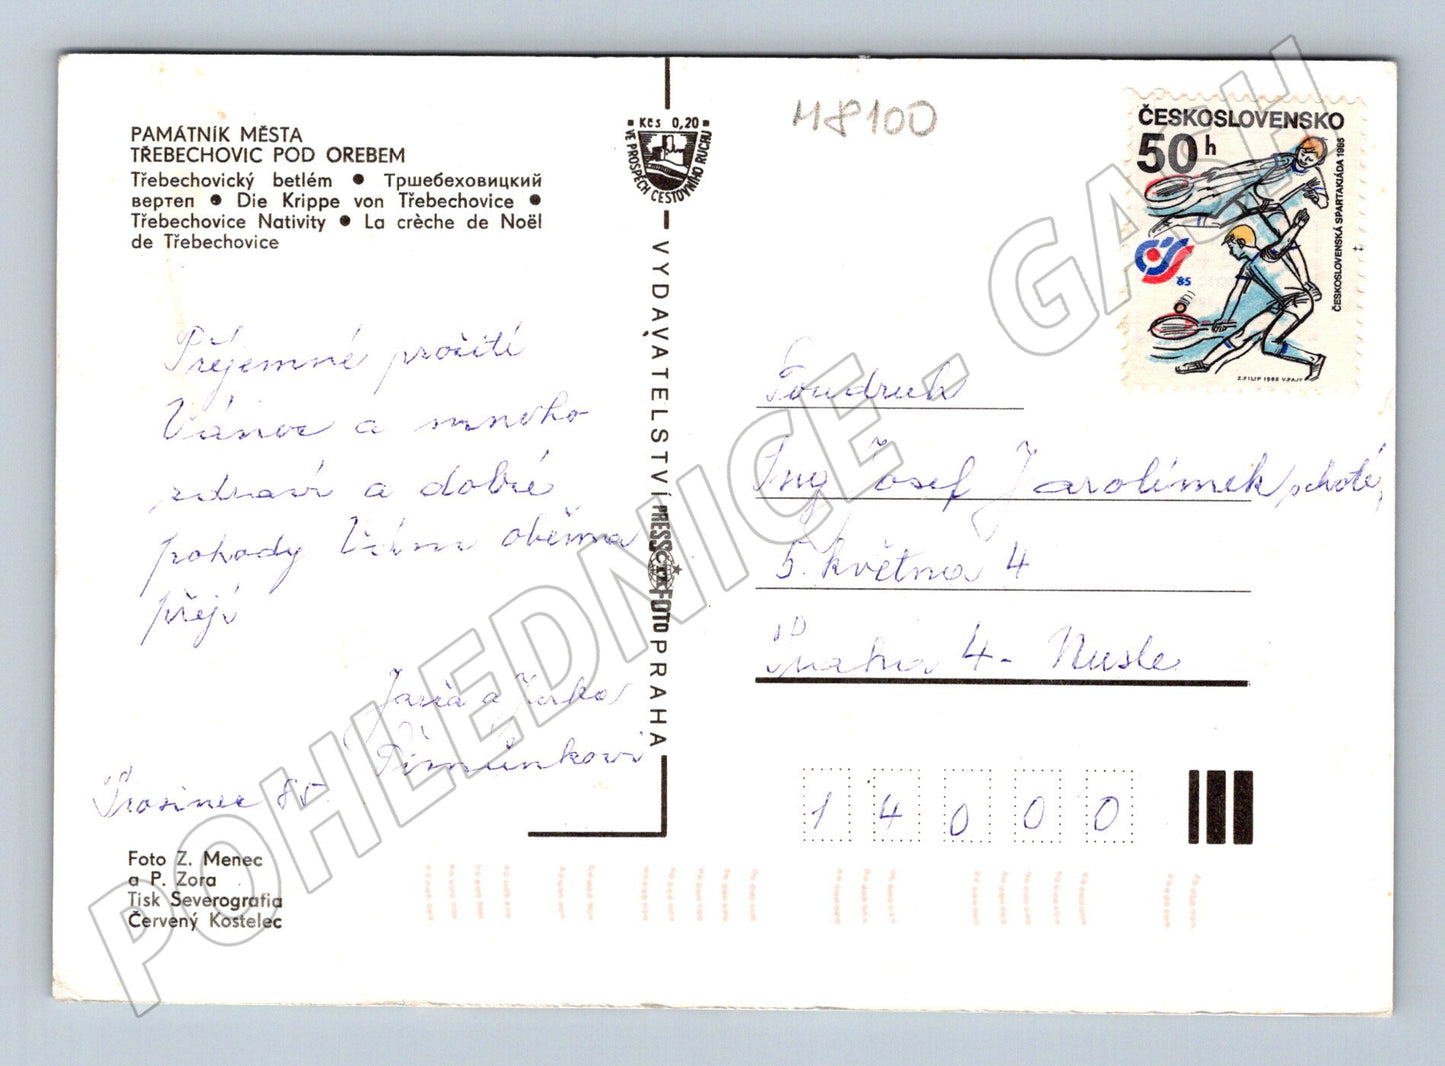 PAMÁTNÍK MĚSTA
TŘEBECHOVIC POD OREBEM
Třebechovický betlém • Тршебеховицкий
вертеп • Die Krippe von Třebechovice •
Třebechovice Nativity • La crèche de Noël
de Třebechovice
Příjemné prožití
Vánoc a mnoho
zdraví a dobré
pohody Vám oběma
přejí
Jana a Jirka
Prosinec 85.
Foto Z. Menec
a P. Zora
Tisk Severografia
Červený Kostelec
Kčs 0,20
VE PROSPĚCH CESTOVNÍHO RUCHU
VYDAVATELSTVÍ PRESSFOTO PRAHA
M8100
ČESKOSLOVENSKO
50 h
ČESKOSLOVENSKÁ SPARTAKIÁDA 1985
ČS
85
Z. FILIP 1985 V. FAJT
Soudruh
Ing Josef Jarolímek
5. května 4
Praha 4 - Nusle
1 4 0 0 0
POHLEDNICE.GASH